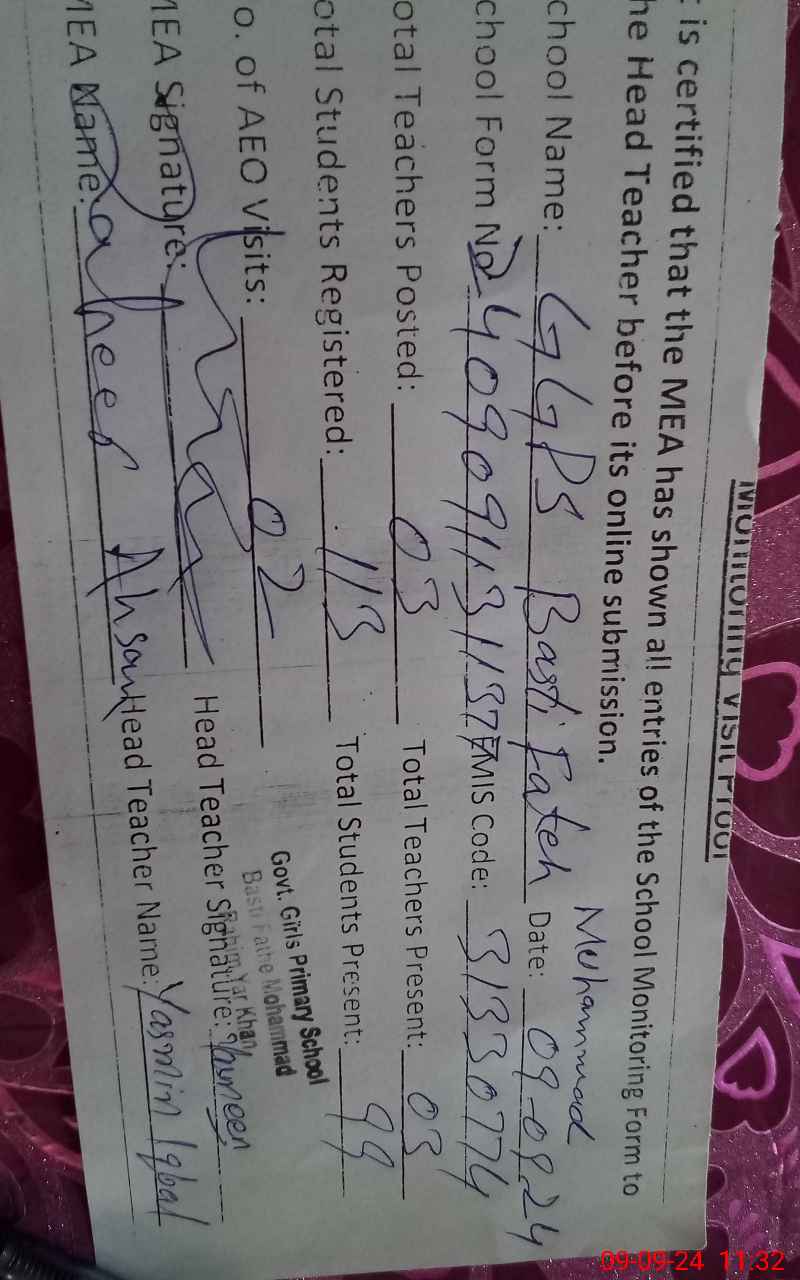 Monitoring Visit Proof
t is certified that the MEA has shown all entries of the School Monitoring Form to
he Head Teacher before its online submission.
chool Name: GGPS Basti Fateh Muhammad Date: 09-09-24
chool Form No. 2409091131137 EMIS Code: 31330774
otal Teachers Posted: 03 Total Teachers Present: 03
otal Students Registered: 113 Total Students Present: 99
o. of AEO Visits: 02
Govt. Girls Primary School
Basti Fathe Mohammad
Rahim Yar Khan
MEA Signature: Head Teacher Signature:
MEA Name: Zaheer Ahsan Head Teacher Name: Yasmin Iqbal
09-09-24 11:32